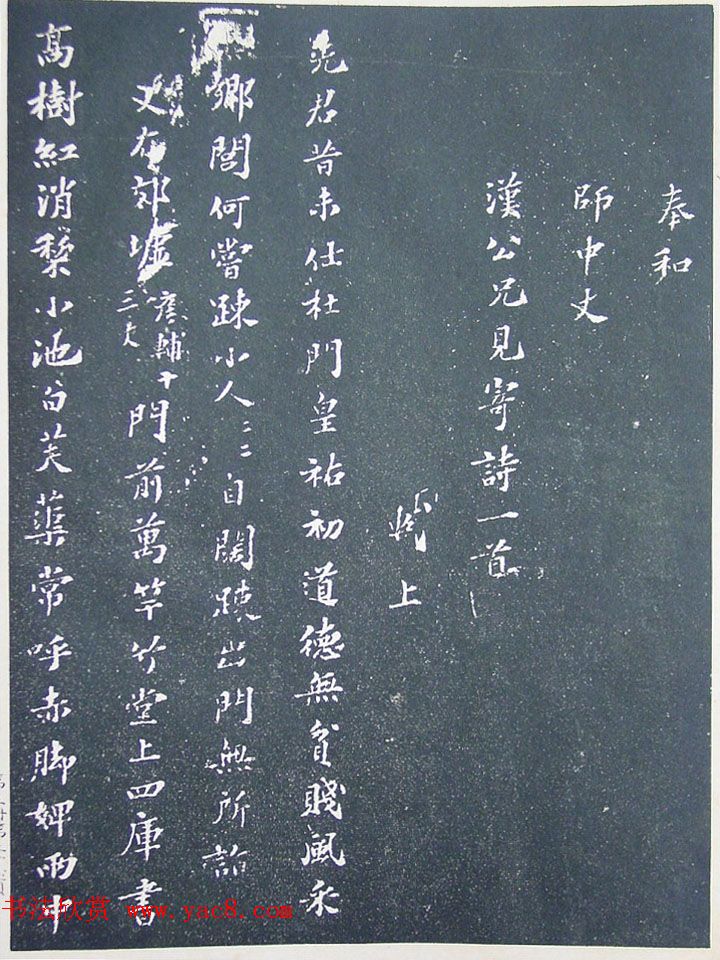 奉和
師中丈
漢公兄見寄詩一首
軾上
先君昔未仕杜門皇祐初道德無貧賤風采
鄉閭何嘗踈小人〻〻自闊踈出門無所詣
史在郊墟彥輔十三丈門前萬竿竹堂上四庫書
高樹紅消梨小池白芙蕖常呼赤脚婢雨中
书法欣赏 www.yac8.com